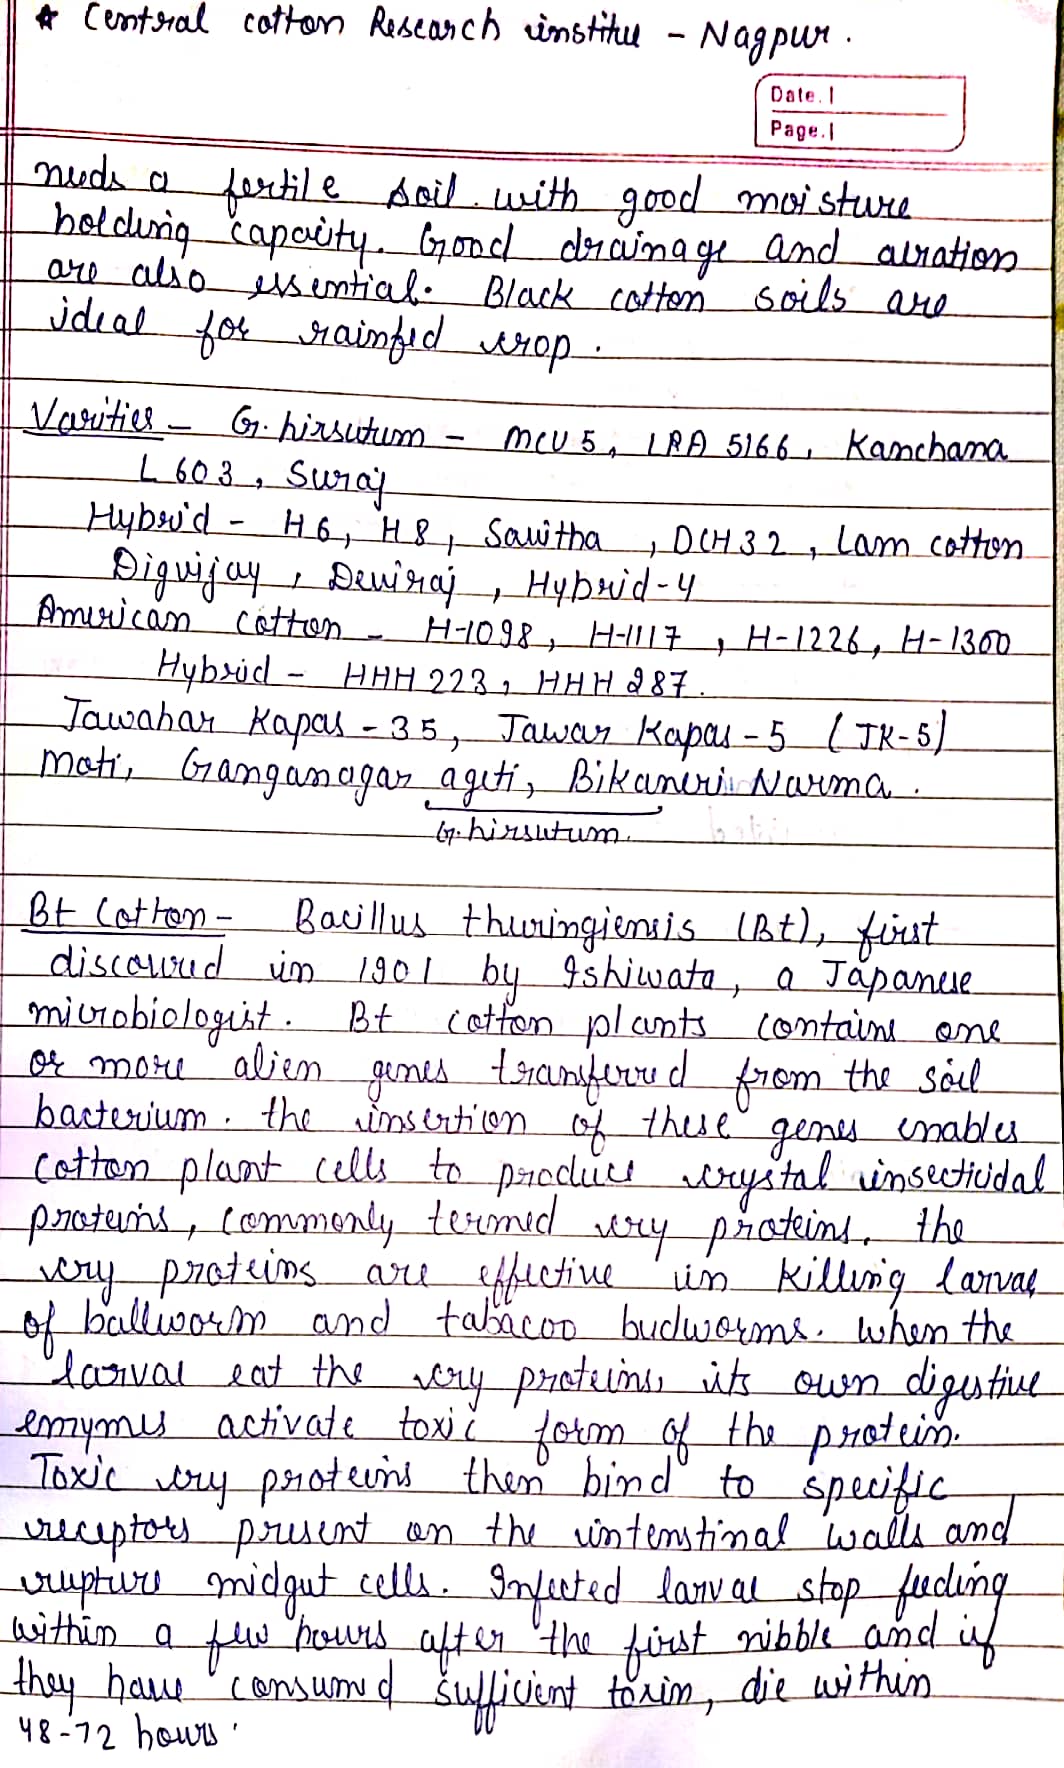 * Central cotton Research institue - Nagpur.
Date.
Page.
needs a fertile soil with good moisture
holding capacity. Good drainage and airation
are also essential. Black cotton soils are
ideal for rainfed crop.
Varities - G. hirsutum - MCU 5, LRA 5166, Kanchana
L 603, Suraj
Hybrid - H6, H8, Savitha, DCH 32, Lam cotton
Digvijay, Deviraj, Hybrid-4
American cotton - H-1098, H-1117, H-1226, H-1300
Hybrid - HHH 223, HHH 287.
Jawahar Kapas - 35, Jawar Kapas - 5 (JK-5)
Moti, Ganganagar ageti, Bikaneri Narma.
G. hirsutum.
Bt Cotton - Bacillus thuringiensis (Bt), first
discovred in 1901 by Ishiwata, a Japanese
microbiologist. Bt cotton plants contains one
or more alien genes transferred from the soil
bacterium. the insertion of these genes enables
cotton plant cells to produce crystal insecticidal
proteins, commonly termed cry proteins. the
cry proteins are effective in killing larvae
of ballworm and tabacoo budworms. when the
larvae eat the cry proteins, its own digestive
enzymes activate toxic form of the protein.
Toxic cry proteins then bind to specific
receptors present on the intenstinal walls and
rupture midgut cells. Infected larvae stop feeding
within a few hours after the first nibble and if
they have consumed sufficient toxin, die within
48-72 hours.